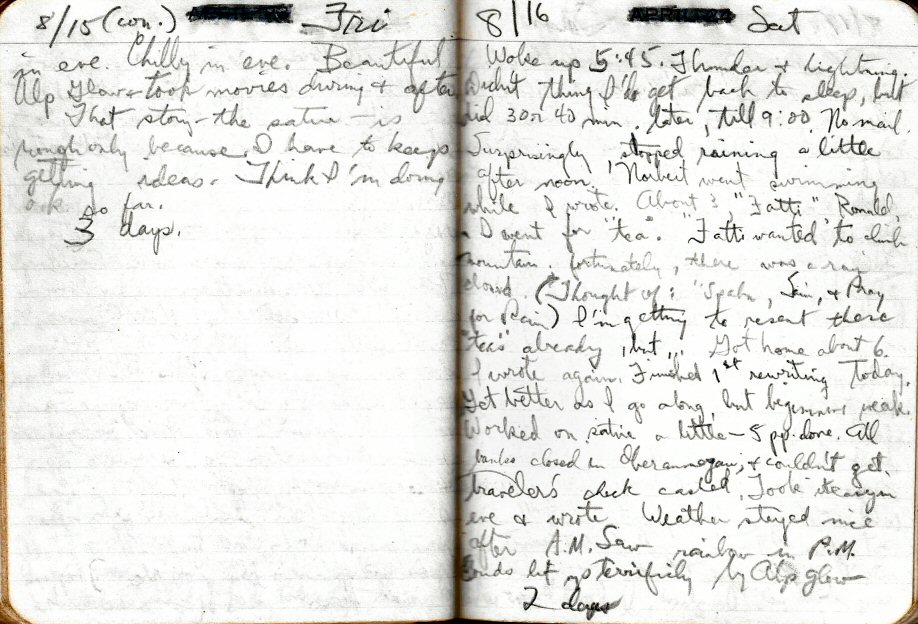 8/15 (con.) Fri
in eve. Chilly in eve. Beautiful
Alp Glow & took movies during & after
That story - the satire - is
rough only because I have to keep
getting ideas. Think I'm doing
ok so far.
3 days.
8/16 Sat
Woke up 5:45. Thunder & Lightning.
Didn't thing I'd get back to sleep, but
did 30 or 40 min. later, till 9:00. No mail.
Surprisingly, stopped raining a little
after noon. Norbert went swimming
while I wrote. About 3, "Fatti" Ronald,
I went for "tea". "Fatti wanted to climb
mountain. Fortunately, there was a rain
cloud. (Thought of: "Spahn, Sain, & Pray
for Rain) I'm getting to resent these
"teas" already, but... Got home about 6.
I wrote again. Finished 1st rewriting Today.
Got better as I go along, but beginning weak.
Worked on satire a little - 8 pp. done. All
banks closed in Oberammergau, & couldn't get
traveler's check cashed. Took
eve & wrote. Weather stayed nice
after A.M. Saw rainbow in P.M.
lit up terrificly by Alp glow
2 days